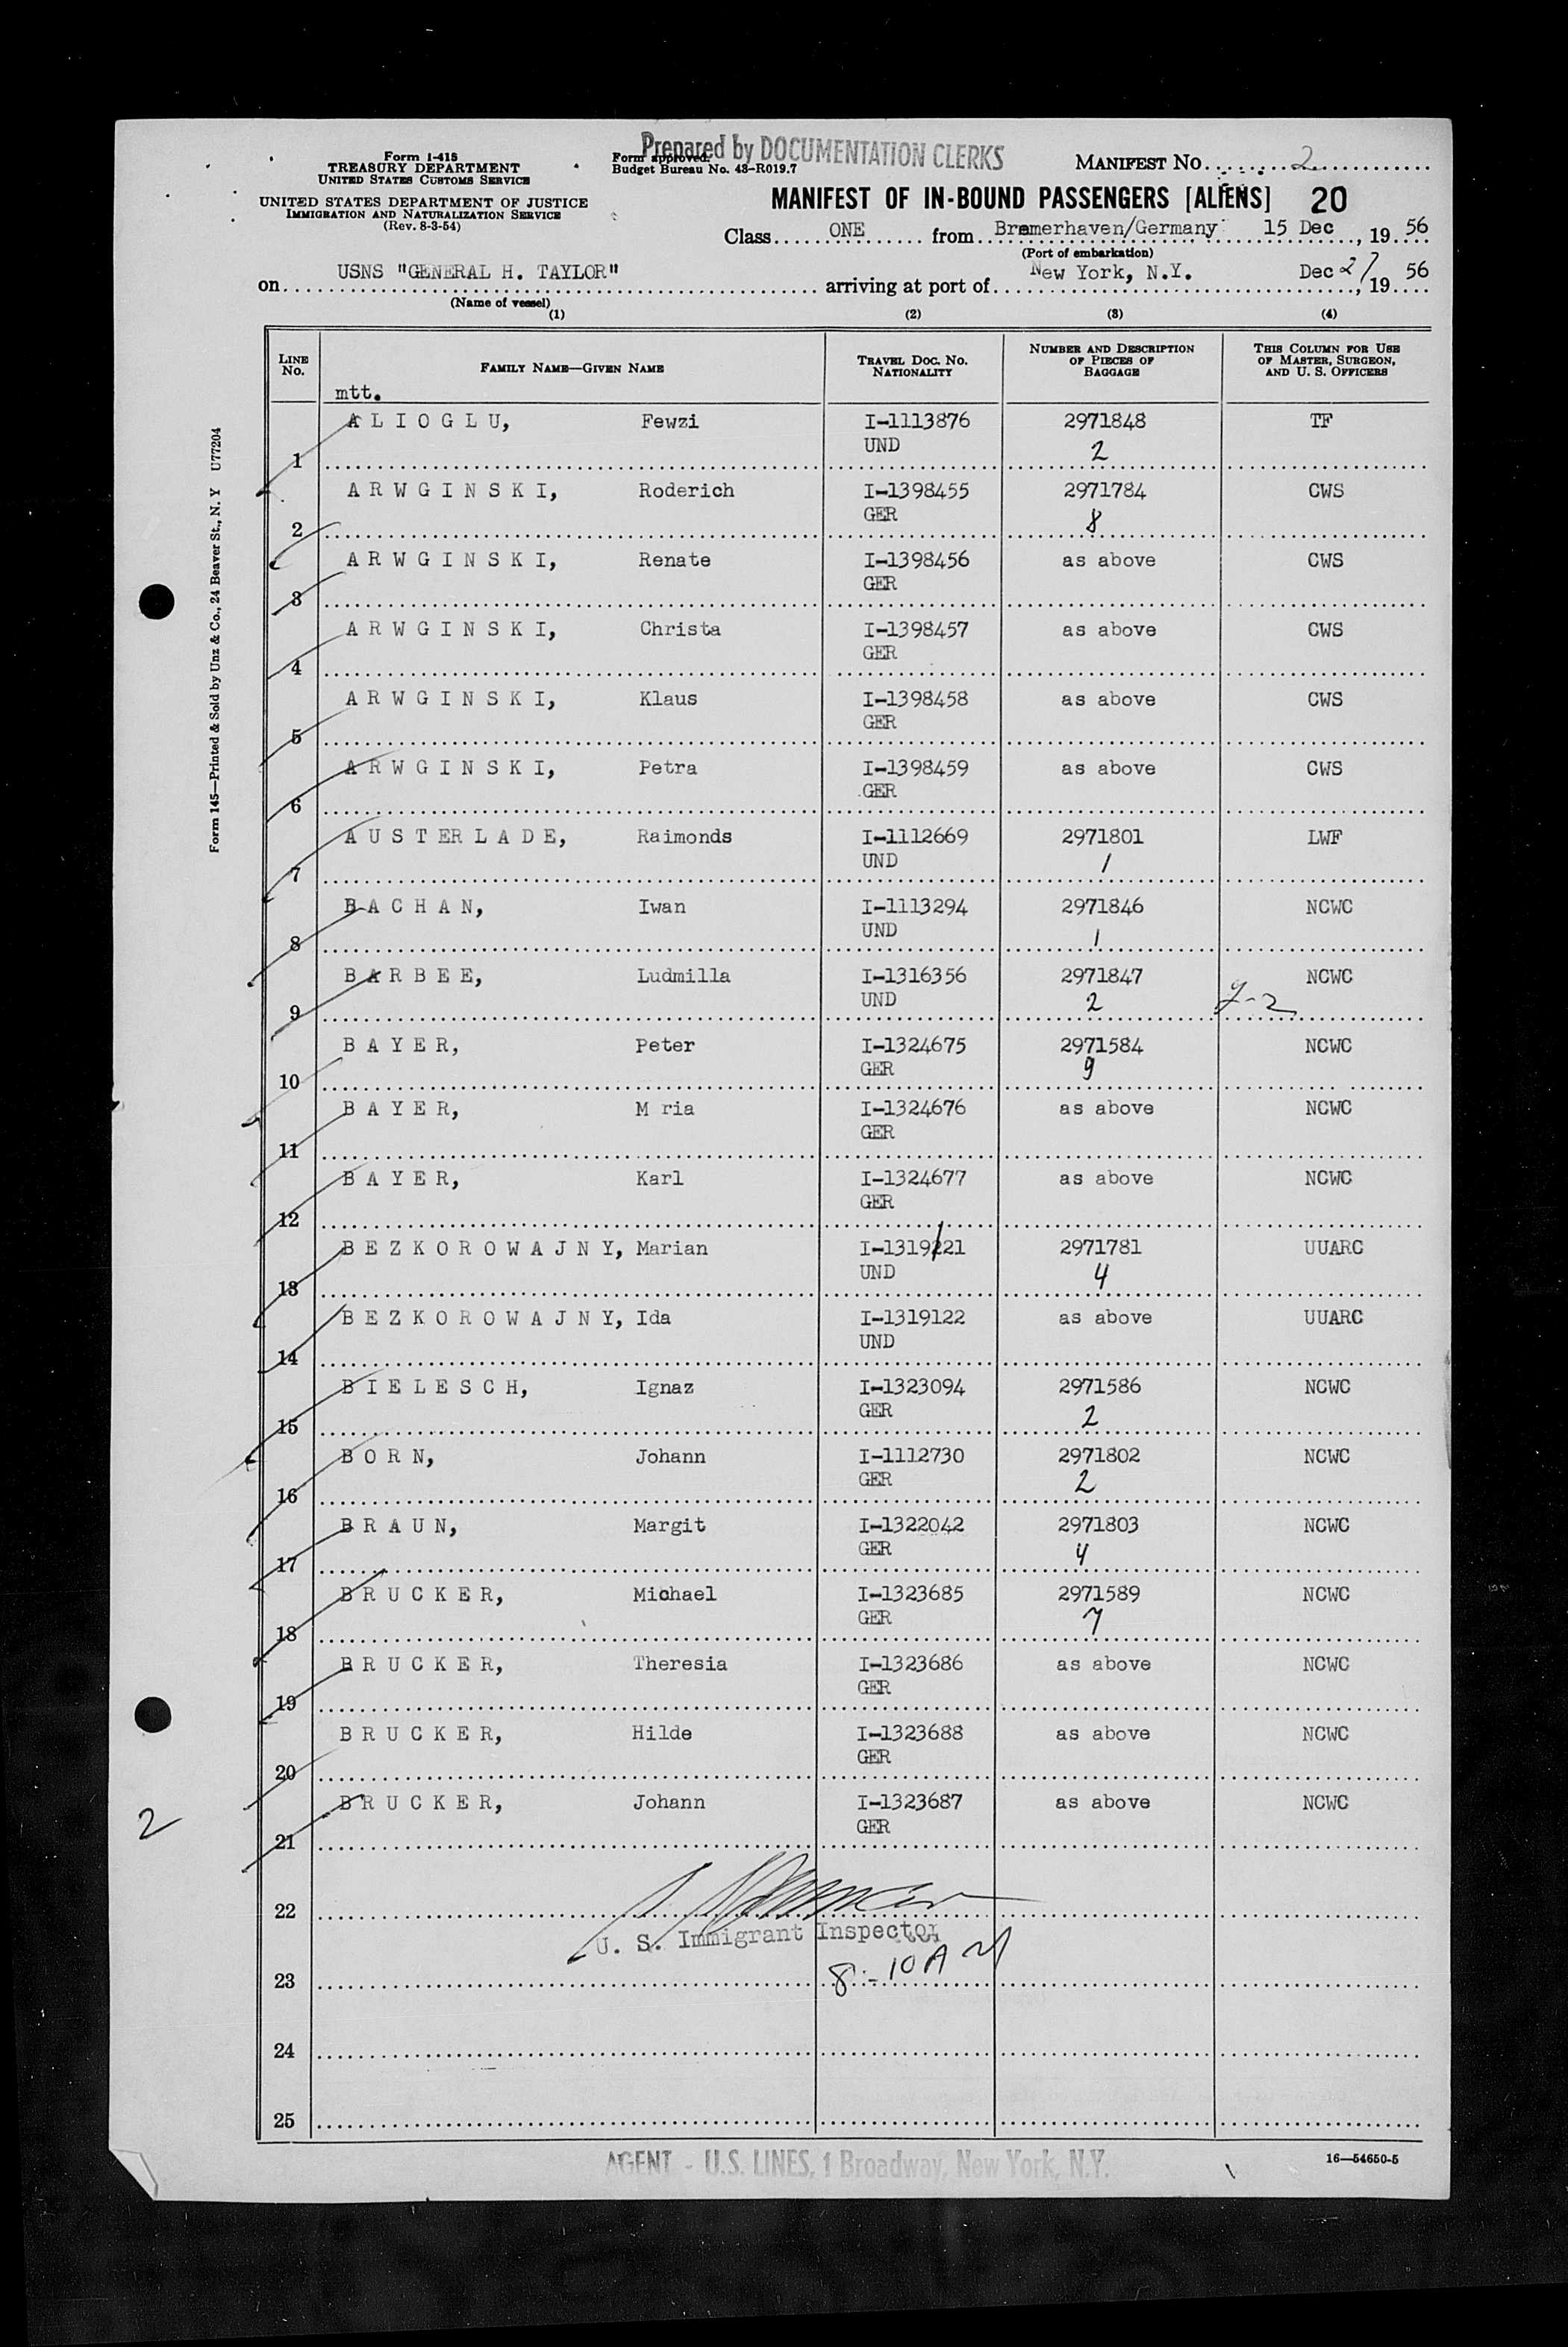 Prepared by DOCUMENTATION CLERKS
Form I-418
TREASURY DEPARTMENT
UNITED STATES CUSTOMS SERVICE
Form approved.
Budget Bureau No. 43-R019.7
MANIFEST NO. 2
UNITED STATES DEPARTMENT OF JUSTICE
IMMIGRATION AND NATURALIZATION SERVICE
(Rev. 8-3-54)
MANIFEST OF IN-BOUND PASSENGERS [ALIENS] 20
Class ONE from Bremerhaven/Germany 15 Dec, 19 56
(Port of embarkation)
on USNS "GENERAL H. TAYLOR" arriving at port of New York, N.Y. Dec 27, 19 56
(Name of vessel)
(1) (2) (3) (4)
LINE NO. FAMILY NAME—GIVEN NAME TRAVEL DOC. NO. NATIONALITY NUMBER AND DESCRIPTION OF PIECES OF BAGGAGE THIS COLUMN FOR USE OF MASTER, SURGEON, AND U. S. OFFICERS
mtt.
A L I O G L U, Fewzi I-1113876 2971848 TF
1 UND 2
A R W G I N S K I, Roderich I-1398455 2971784 CWS
2 GER 8
A R W G I N S K I, Renate I-1398456 as above CWS
3 GER
A R W G I N S K I, Christa I-1398457 as above CWS
4 GER
A R W G I N S K I, Klaus I-1398458 as above CWS
5 GER
A R W G I N S K I, Petra I-1398459 as above CWS
6 GER
A U S T E R L A D E, Raimonds I-1112669 2971801 LWF
7 UND 1
B A C H A N, Iwan I-1113294 2971846 NCWC
8 UND 1
B A R B E E, Ludmilla I-1316356 2971847 NCWC
9 UND 2
B A Y E R, Peter I-1324675 2971584 NCWC
10 GER 9
B A Y E R, M ria I-1324676 as above NCWC
11 GER
B A Y E R, Karl I-1324677 as above NCWC
12 GER
B E Z K O R O W A J N Y, Marian I-1319121 2971781 UUARC
13 UND 4
B E Z K O R O W A J N Y, Ida I-1319122 as above UUARC
14 UND
B I E L E S C H, Ignaz I-1323094 2971586 NCWC
15 GER 2
B O R N, Johann I-1112730 2971802 NCWC
16 GER 2
B R A U N, Margit I-1322042 2971803 NCWC
17 GER 4
B R U C K E R, Michael I-1323685 2971589 NCWC
18 GER 7
B R U C K E R, Theresia I-1323686 as above NCWC
19 GER
B R U C K E R, Hilde I-1323688 as above NCWC
20 GER
B R U C K E R, Johann I-1323687 as above NCWC
21 GER
2
22
U. S. Immigrant Inspector
23 8-10 AM
24
25
AGENT - U.S. LINES, 1 Broadway, New York, N.Y.
16—54650-5
Form 145—Printed & Sold by Unz & Co., 24 Beaver St., N. Y U77204